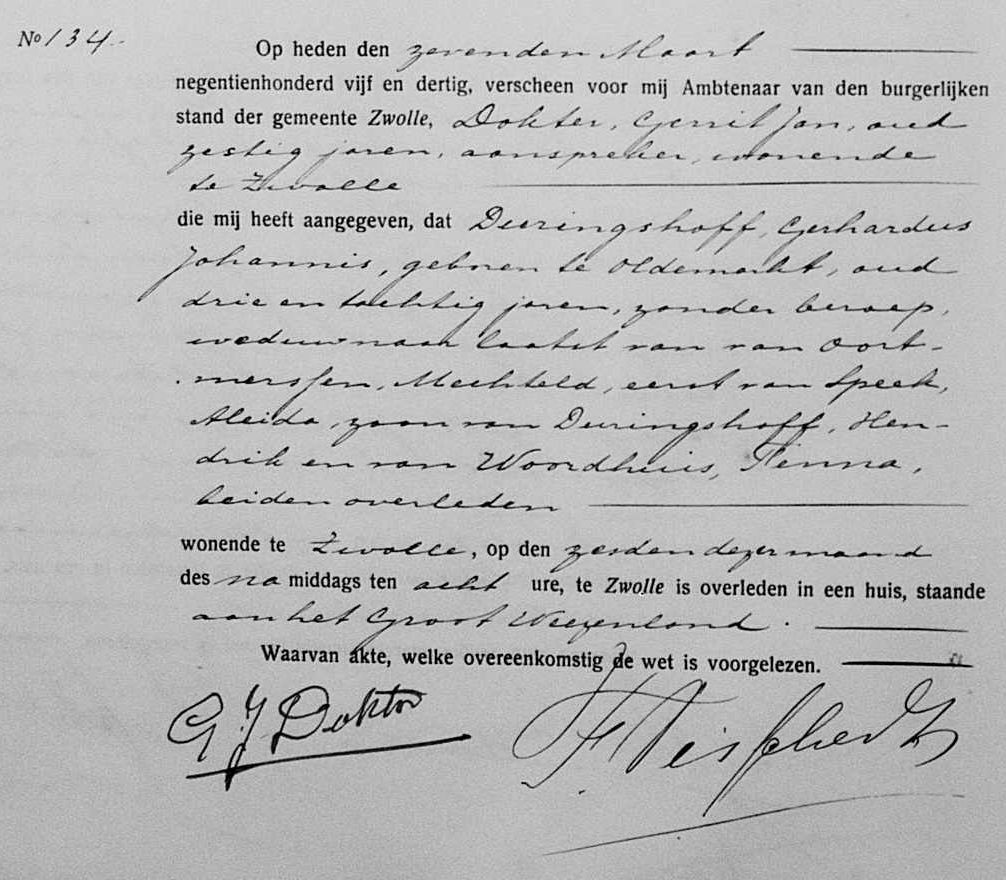 No 134.
Op heden den zevenden Maart
negentienhonderd vijf en dertig, verscheen voor mij Ambtenaar van den burgerlijken
stand der gemeente Zwolle, Dokter, Gerrit Jan, oud
zestig jaren, aanspreker, wonende
te Zwolle
die mij heeft aangegeven, dat Deuringshoff, Gerhardus
Johannis, geboren te Oldemarkt, oud
drie en tachtig jaren, zonder beroep,
weduwnaar laatst van van Oort-
merssen, Mechteld, eerst van Speek,
Aleida, zoon van Deuringshoff, Hen-
drik en van Woordhuis, Stenna,
beiden overleden
wonende te Zwolle, op den zesden dezer maand
des na middags ten acht ure, te Zwolle is overleden in een huis, staande
aan het Groot Weezenland.
Waarvan akte, welke overeenkomstig de wet is voorgelezen.
G J Dokter